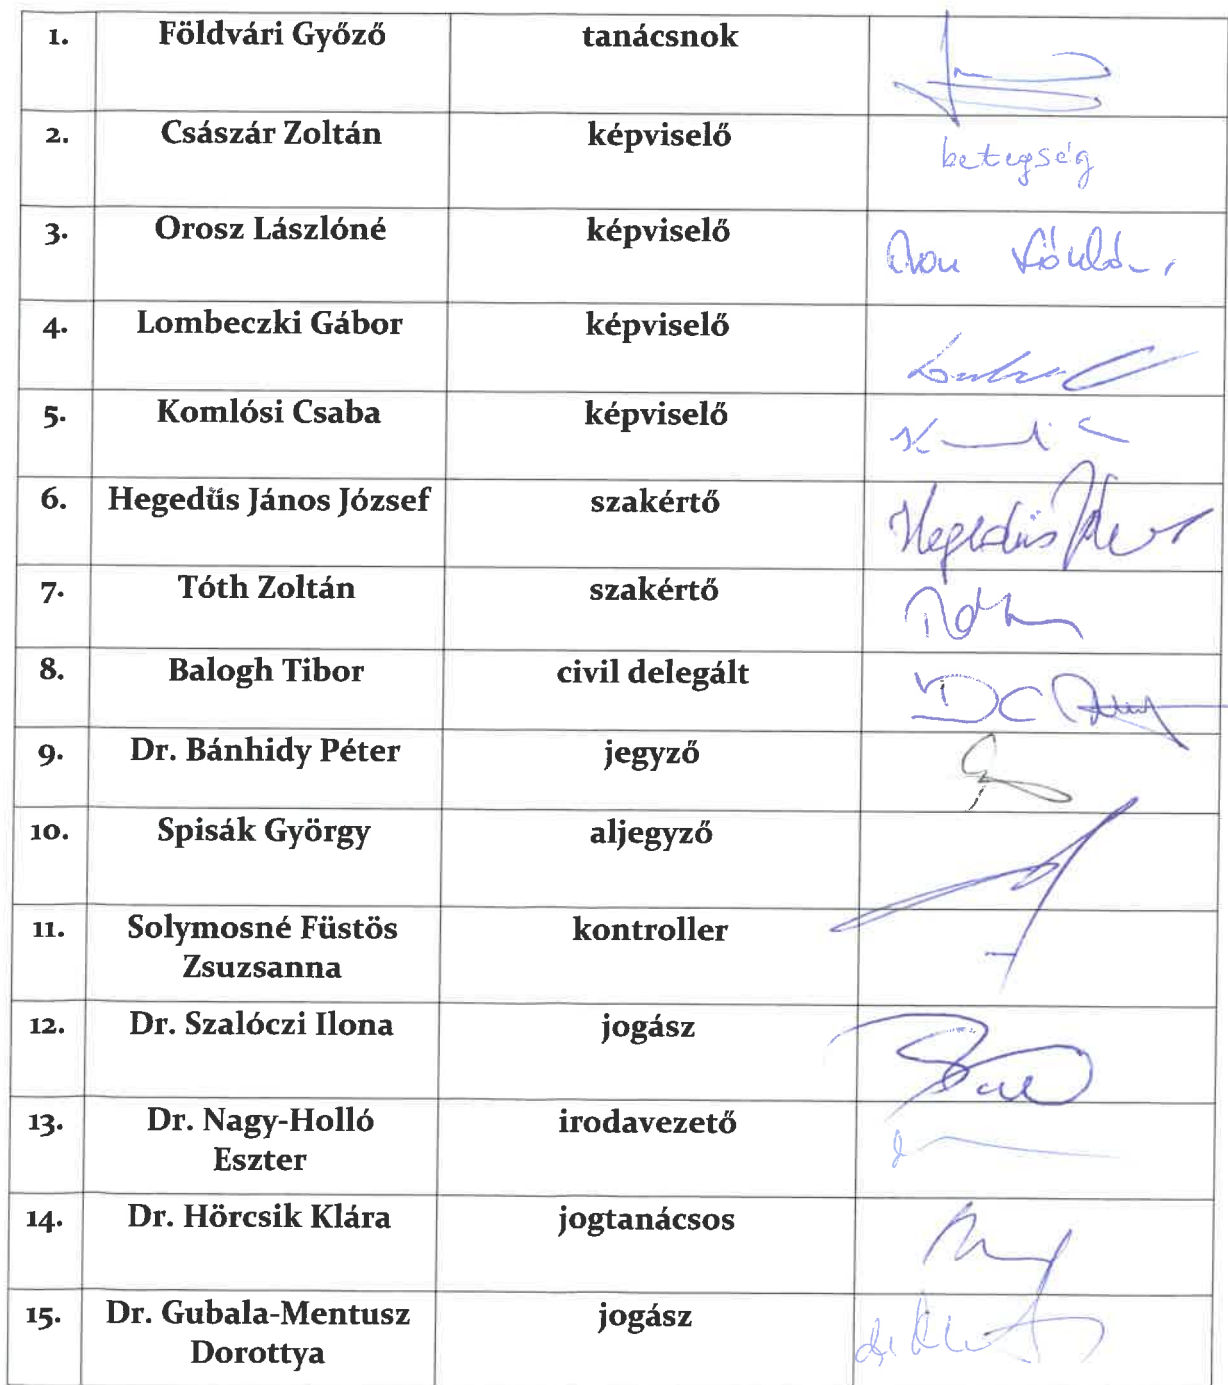 1. Földvári Győző tanácsnok
2. Császár Zoltán képviselő betegség
3. Orosz Lászlóné képviselő
4. Lombeczki Gábor képviselő
5. Komlósi Csaba képviselő
6. Hegedűs János József szakértő Hegedűs
7. Tóth Zoltán szakértő
8. Balogh Tibor civil delegált
9. Dr. Bánhidy Péter jegyző
10. Spisák György aljegyző
11. Solymosné Füstös kontroller
Zsuzsanna
12. Dr. Szalóczi Ilona jogász
13. Dr. Nagy-Holló irodavezető
Eszter
14. Dr. Hörcsik Klára jogtanácsos
15. Dr. Gubala-Mentusz jogász
Dorottya